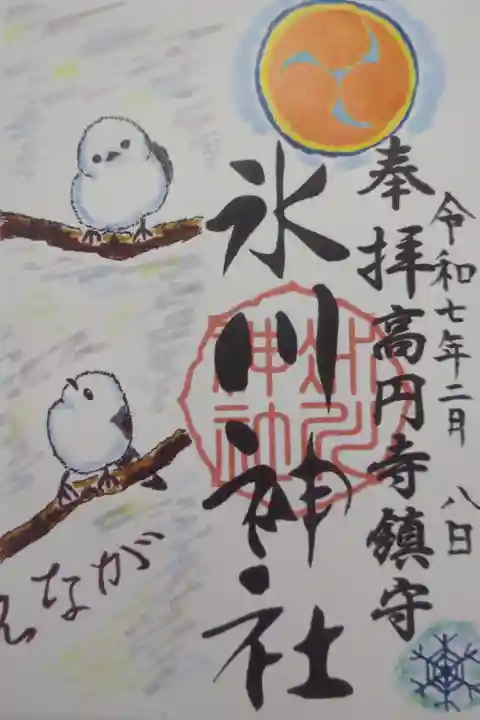 令和七年二月 八日
奉拝高円寺鎮守
氷川神社
氷川神社
えなが